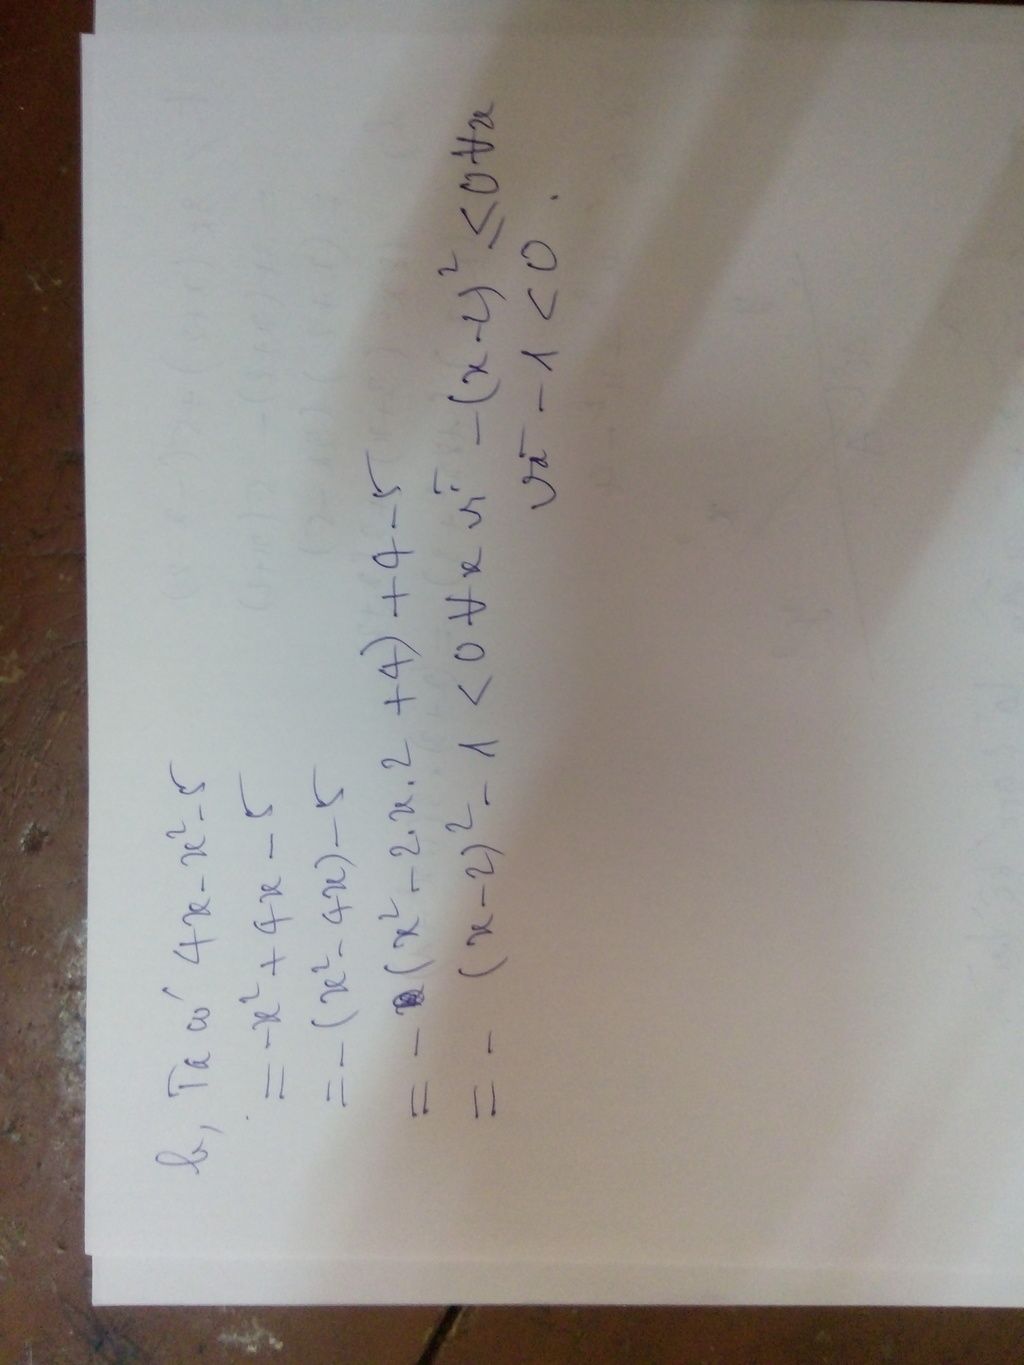 b, Ta có 4x - x² - 5
= -x² + 4x - 5
= -(x² - 4x) - 5
= -(x² - 2.x.2 + 4) + 4 - 5
= -(x - 2)² - 1 < 0 ∀x vì -(x - 2)² ≤ 0 ∀x
và -1 < 0.